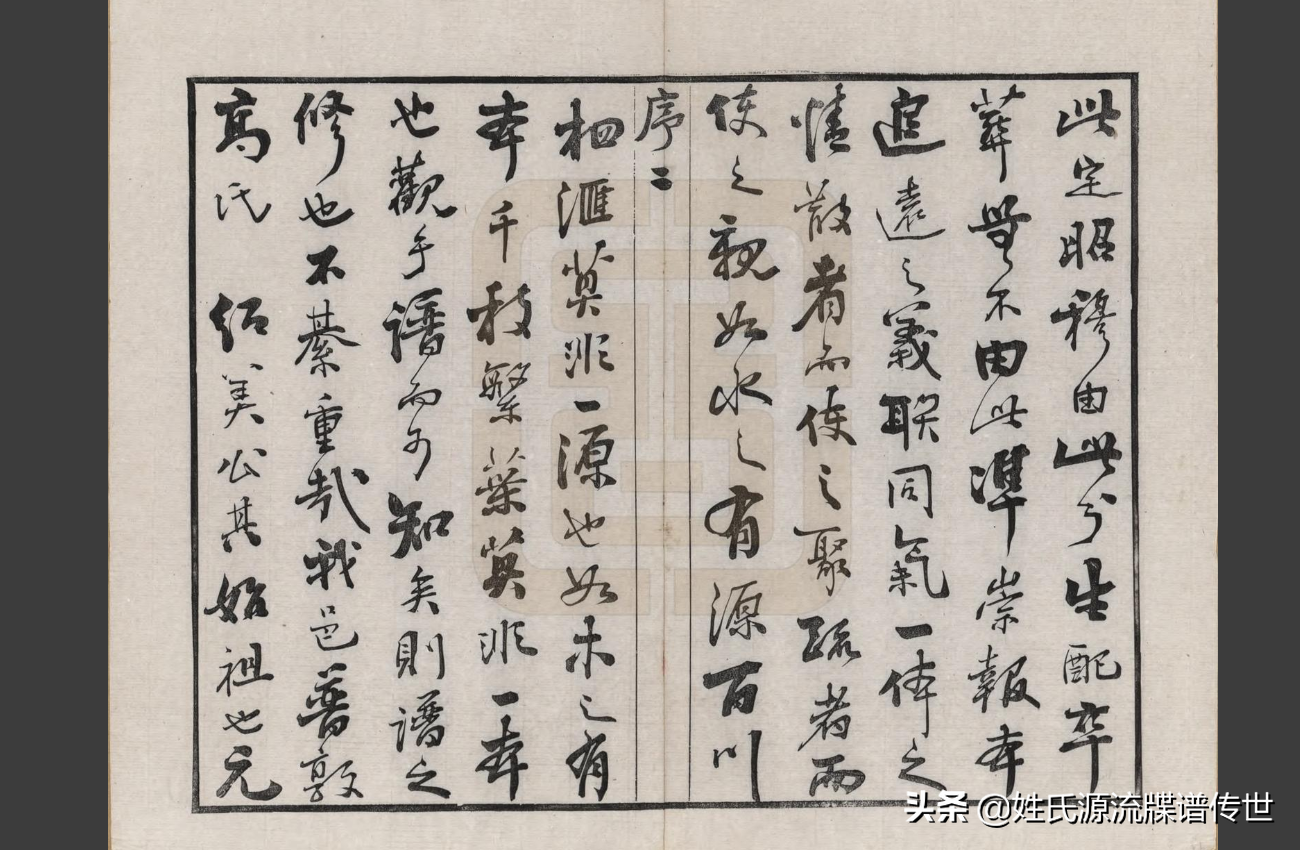 此定昭穆由此分生配卒
葬無不由此準崇報本
追遠之義聯同氣一体之
情散者而使之聚疏者而
使之親如水之有源百川
序二
相滙莫非一源也如木之有
本千枝繁葉莫非一本
也觀乎譜而可知矣則譜之
修也不綦重哉我邑普敦
高氏 紹美公其始祖也元
头条 @姓氏源流牒谱传世